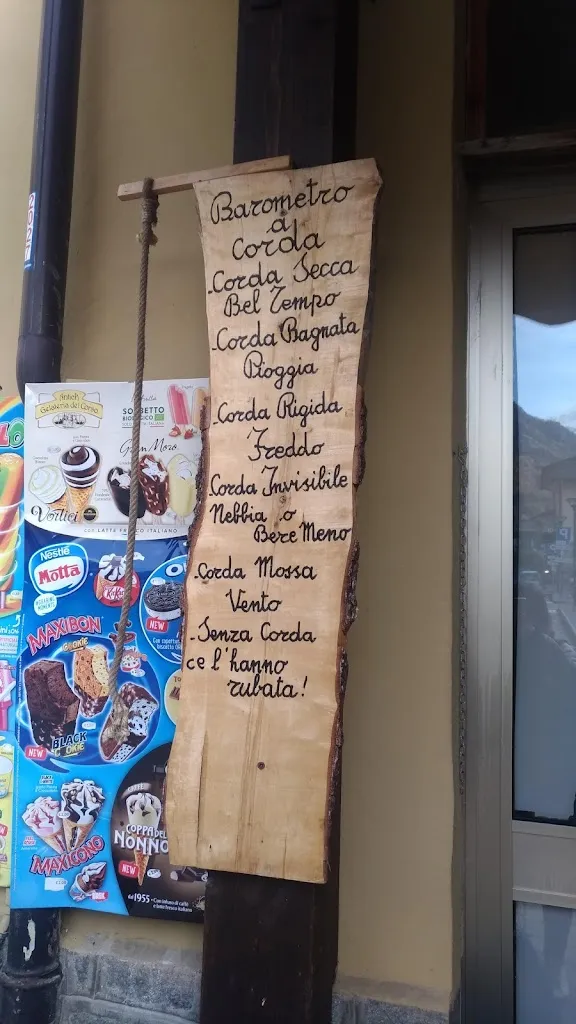 Barometro
a
Corda
-Corda Secca
Bel Tempo
-Corda Bagnata
Pioggia
-Corda Rigida
Freddo
-Corda Invisibile
Nebbia o
Bere Meno
-Corda Mossa
Vento
-Senza Corda
ce l'hanno
rubata!
Antica
Gelateria del Corso
SORBETTO
Gran Moro
Vortici
CON LATTE FRESCO ITALIANO
Nestlé
Motta
NEW
MAXIBON
COOKIE
BLACK
COOKIE
NEW
MAXICONO
COPPA DEL
NONNO
NEW
dal 1955